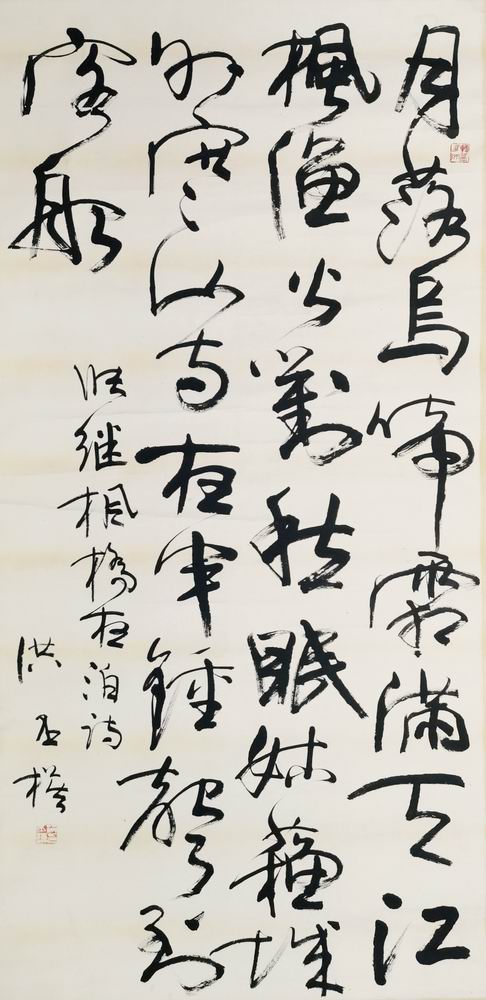 月落烏啼霜滿天江
楓漁火對愁眠姑蘇城
外寒山寺夜半鐘聲到
客船
張继楓橋夜泊詩
洪丕模